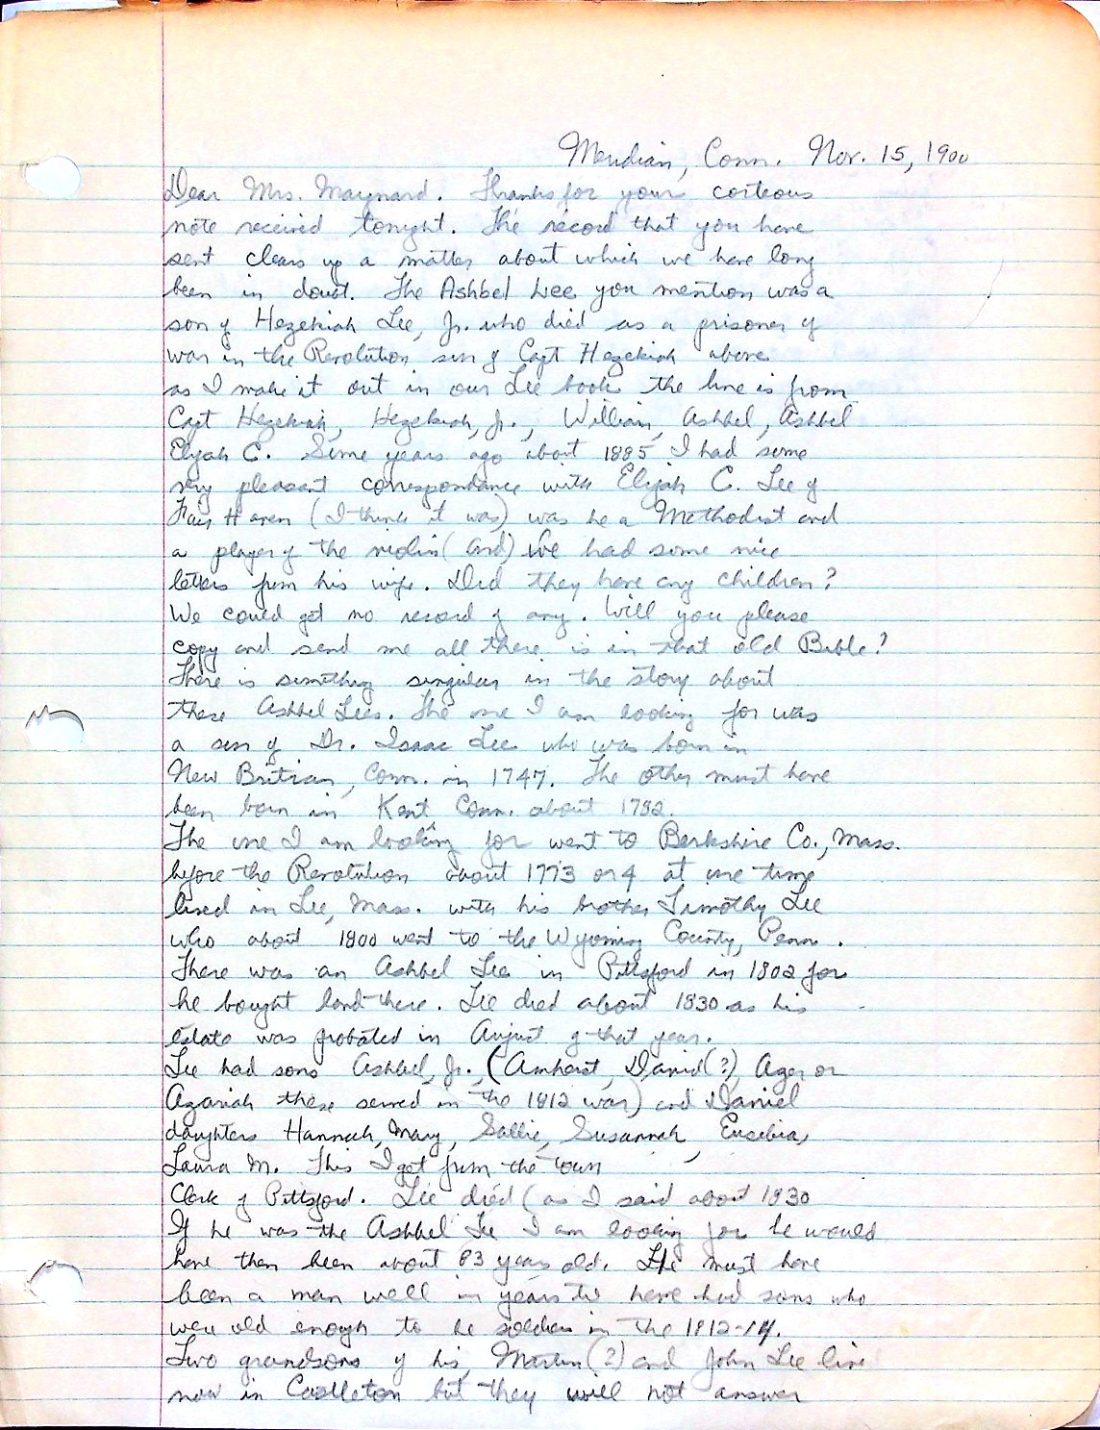 Meridian, Conn. Nov. 15, 1900
Dear Mrs. Maynard. Thanks for your corteous
note received tonight. The record that you have
sent clears up a matter about which we have long
been in doubt. The Ashbel Lee you mention was a
son of Hezekiah Lee, Jr. who died as a prisoner of
war in the Revolution son of Capt Hezekiah above
as I make it out in our Lee book the line is from
Capt Hezekiah, Hezekiah, Jr., William, Ashbel, Ashbel
Elijah C. Some years ago about 1885 I had some
very pleasant correspondance with Elijah C. Lee of
Fair Haven (I think it was) was he a Methodist and
a player of the violin (and) We had some nice
letters from his wife. Did they have any children?
We could get no record of any. Will you please
copy and send me all there is in that old Bible?
There is something singular in the story about
these Ashbel Lees. The one I am looking for was
a son of Dr. Isaac Lee who was born in
New Britian, Conn. in 1747. The other must have
been born in Kent Conn. about 1782.
The one I am looking for went to Berkshire Co., Mass.
before the Revolution about 1773 or 4 at one time
lived in Lee, Mass. with his brother Timothy Lee
who about 1800 went to the Wyoming County, Penn.
There was an Ashbel Lee in Pittsford in 1802 for
he bought land there. Lee died about 1830 as his
estate was probated in August of that year.
Lee had sons Ashbel, Jr., (Amherst, David(?) Ager or
Azariah these served in the 1812 war) and Daniel
daughters Hannah, Mary, Sallie, Susannah, Eusebia,
Laura M. This I get from the town
Clerk of Pittsford. Lee died (as I said about 1830
If he was the Ashbel Lee I am looking for he would
have then been about 83 years old. He must have
been a man well in years to have had sons who
were old enough to be soldiers in the 1812-14.
Two grandsons of his, Martin(?) and John Lee live
now in Castleton but they will not answer